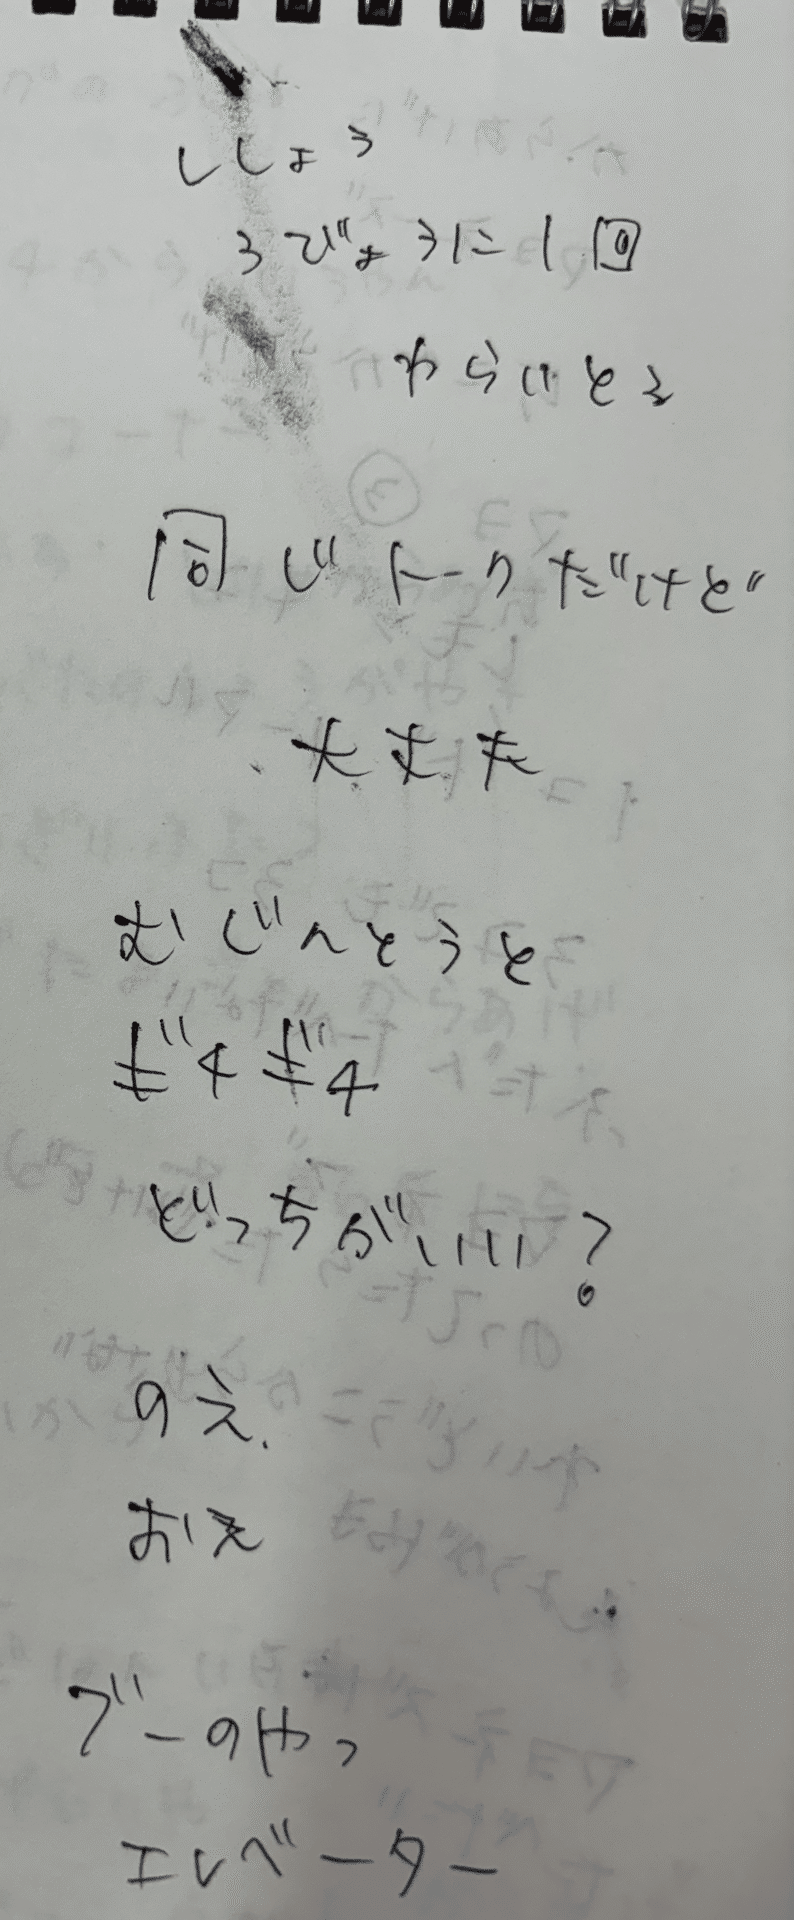 ししょう
3びょうに1回
わらいとる
同じトークだけど
大丈夫
むじんとうと
ギチギチ
どっちがいい?
のえ.
おえ
ブーのやつ
エレベーター